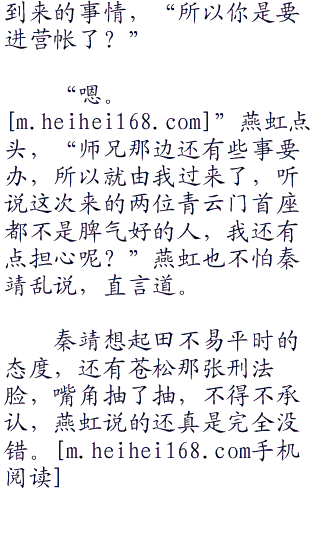 到来的事情，“所以你是要
进营帐了？”
“嗯。
[m.heihei168.com]”燕虹点
头，“师兄那边还有些事要
办，所以就由我过来了，听
说这次来的两位青云门首座
都不是脾气好的人，我还有
点担心呢？”燕虹也不怕秦
靖乱说，直言道。
秦靖想起田不易平时的
态度，还有苍松那张刑法
脸，嘴角抽了抽，不得不承
认，燕虹说的还真是完全没
错。[m.heihei168.com手机
阅读]